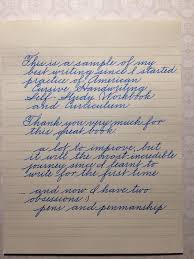 This is a sample of my
best writing since I started
practice of American
Cursive Handwriting
Self-Study Workbook
and Curriculum
Thank you very much for
this great book
a lot to improve, but
it will the most incredible
journey since I learnt to
write for the first time
and now I have two
obsessions :)
pens and penmanship